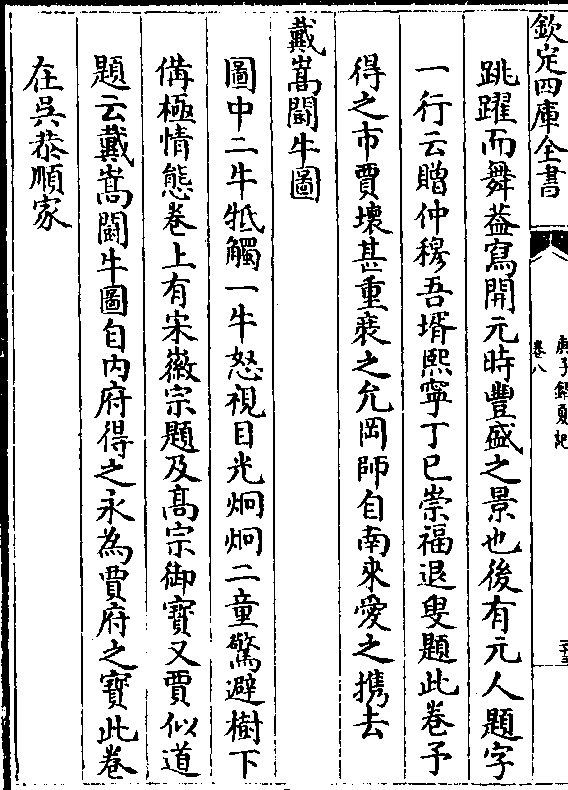 欽定四庫全書
庚子銷夏記
卷八
跳躍而舞葢寫開元時豐盛之景也後有元人題字
一行云贈仲穆吾壻熙寧丁巳崇福退叟題此卷予
得之市賈壊甚重裝之允岡師自南來愛之携去
戴嵩鬪牛圖
圖中二牛牴觸一牛怒視目光炯炯二童驚避樹下
備極情態卷上有宋徽宗題及髙宗御寳又賈似道
題云戴嵩鬪牛圖自内府得之永為賈府之寳此卷
在吳恭順家